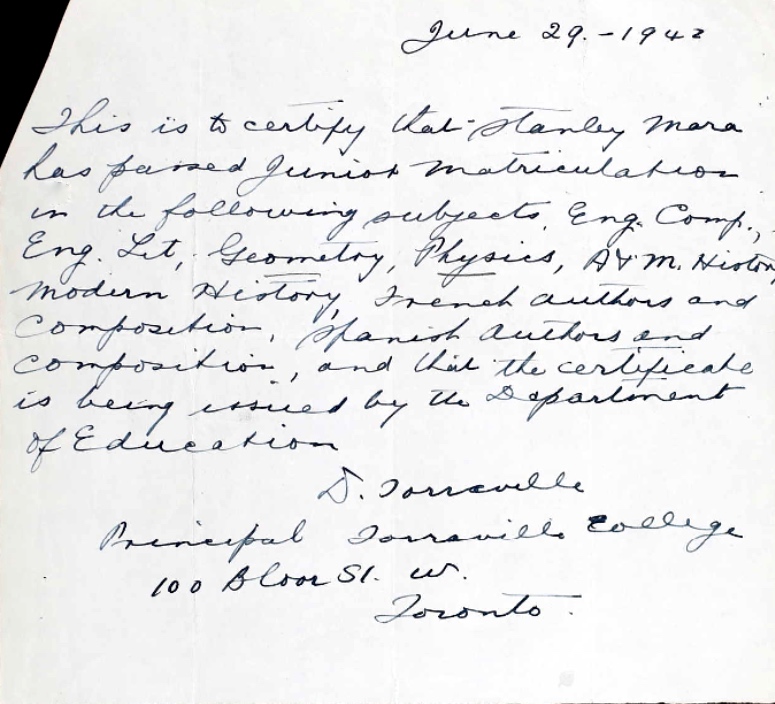 June 29. - 1942
This is to certify that Stanley Mara
has passed Junior Matriculation
in the following subjects, Eng. Comp.,
Eng. Lit, Geometry, Physics, A & M. History
Modern History, French Authors and
Composition, Spanish Authors and
Composition, and that the certificate
is being issued by the Department
of Education
D. Torraville
Principal Torraville College
100 Bloor St. W.
Toronto.